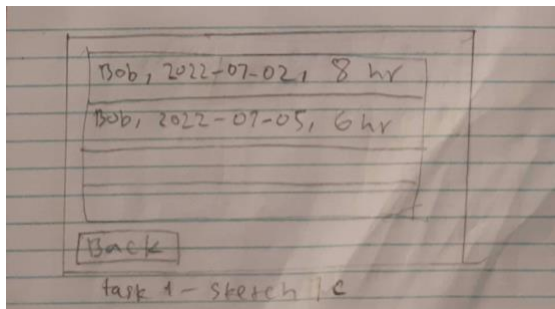 Bob, 2022-07-02, 8 hr
Bob, 2022-07-05, 6 hr
Back
task 1 - sketch 1c